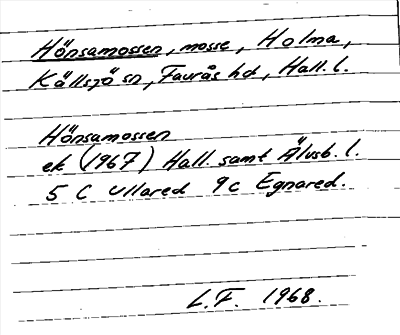 Hönsamossen, mosse, Holma,
Källsjö sn, Faurås hd, Hall. l.
Hönsamossen
ek (1967) Hall. samt Älvsb. l.
5 C Ullared 9c Egnared.
L.F. 1968.